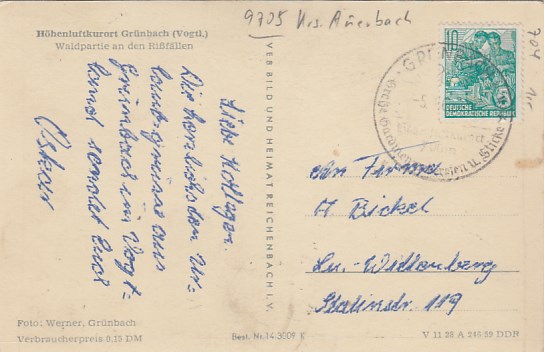 9705 Krs. Auerbach
704
Höhenluftkurort Grünbach (Vogtl.)
Waldpartie an den Rißfällen
Liebe Kollegen.
Die herzlichsten Ur-
laubsgrüsse aus
Grünbach im Vogt-
land sendet Euch
VEB BILD UND HEIMAT REICHENBACH I. V.
10
DEUTSCHE
DEMOKRATISCHE REPUBLIK
An Firma
H Bickel
Lu.-Wittenberg
Stalinstr. 119
Foto: Werner, Grünbach
Verbraucherpreis 0,15 DM
Best. Nr. 14 3009 K
V 11 28 A 246/59 DDR